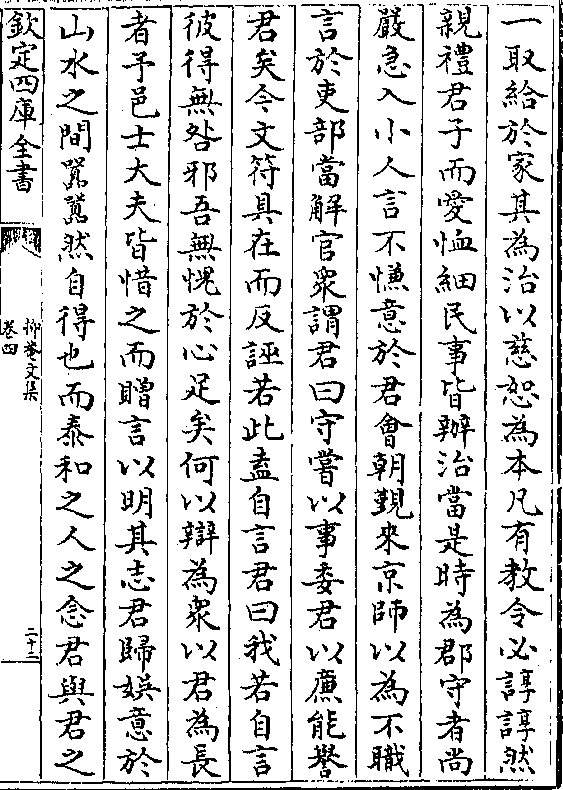 一取給於家其為治以慈恕為本凡有教令必諄諄然
親禮君子而愛恤細民事皆辦治當是時為郡守者尚
嚴急入小人言不慊意於君會朝覲來京師以為不職
言於吏部當解官衆謂君曰守嘗以事委君以亷能譽
君矣今文符具在而反誣若此盍自言君曰我若自言
彼得無咎邪吾無愧於心足矣何以辯為衆以君為長
者予邑士大夫皆惜之而贈言以明其志君歸娱意於
山水之間囂囂然自得也而泰和之人之念君與君之
欽定四庫全書
抑菴文集
卷四
二十二